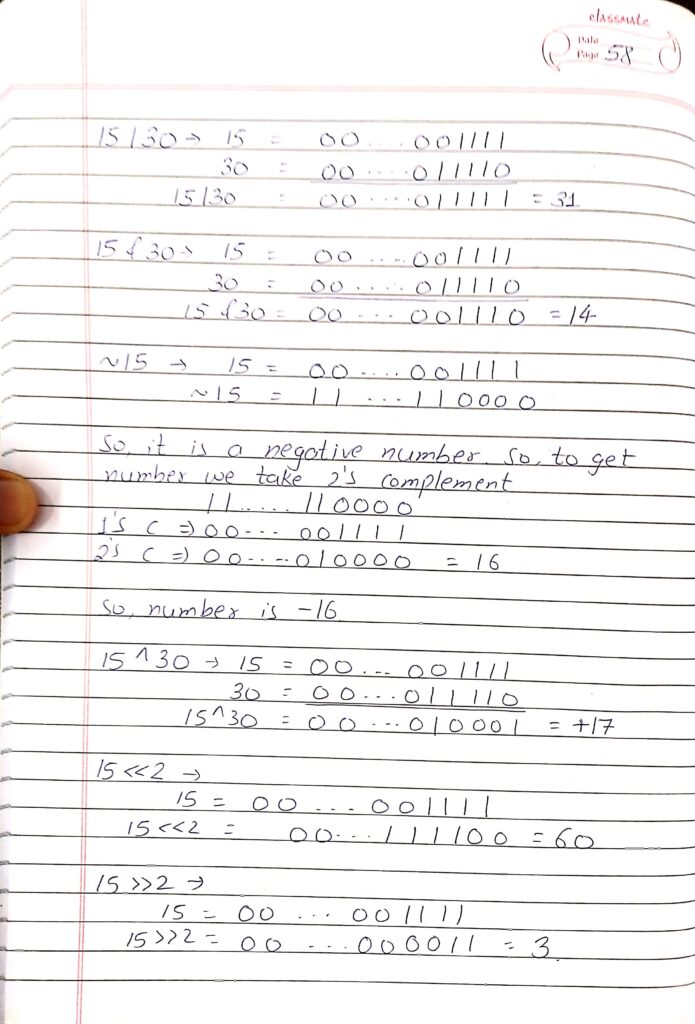 classmate
Date
Page 58
15|30 → 15 = 00 ... 001111
30 = 00 ..... 011110
15|30 = 00 ..... 011111 = 31
15 & 30 → 15 = 00 .... 001111
30 = 00 ..... 011110
15 & 30 = 00 ... 001110 = 14
~15 → 15 = 00 ..... 001111
~15 = 11 ... 110000
So, it is a negative number. So, to get
number we take 2's complement
11 ..... 110000
1's C ⇒ 00 ... 001111
2's C ⇒ 00 ..... 010000 = 16
So, number is -16
15 ^ 30 → 15 = 00 ... 001111
30 = 00 ... 011110
15^30 = 00 ... 010001 = +17
15 << 2 →
15 = 00 ... 001111
15 << 2 = 00 ... 111100 = 60
15 >> 2 →
15 = 00 ... 001111
15 >> 2 = 00 ... 000011 = 3.